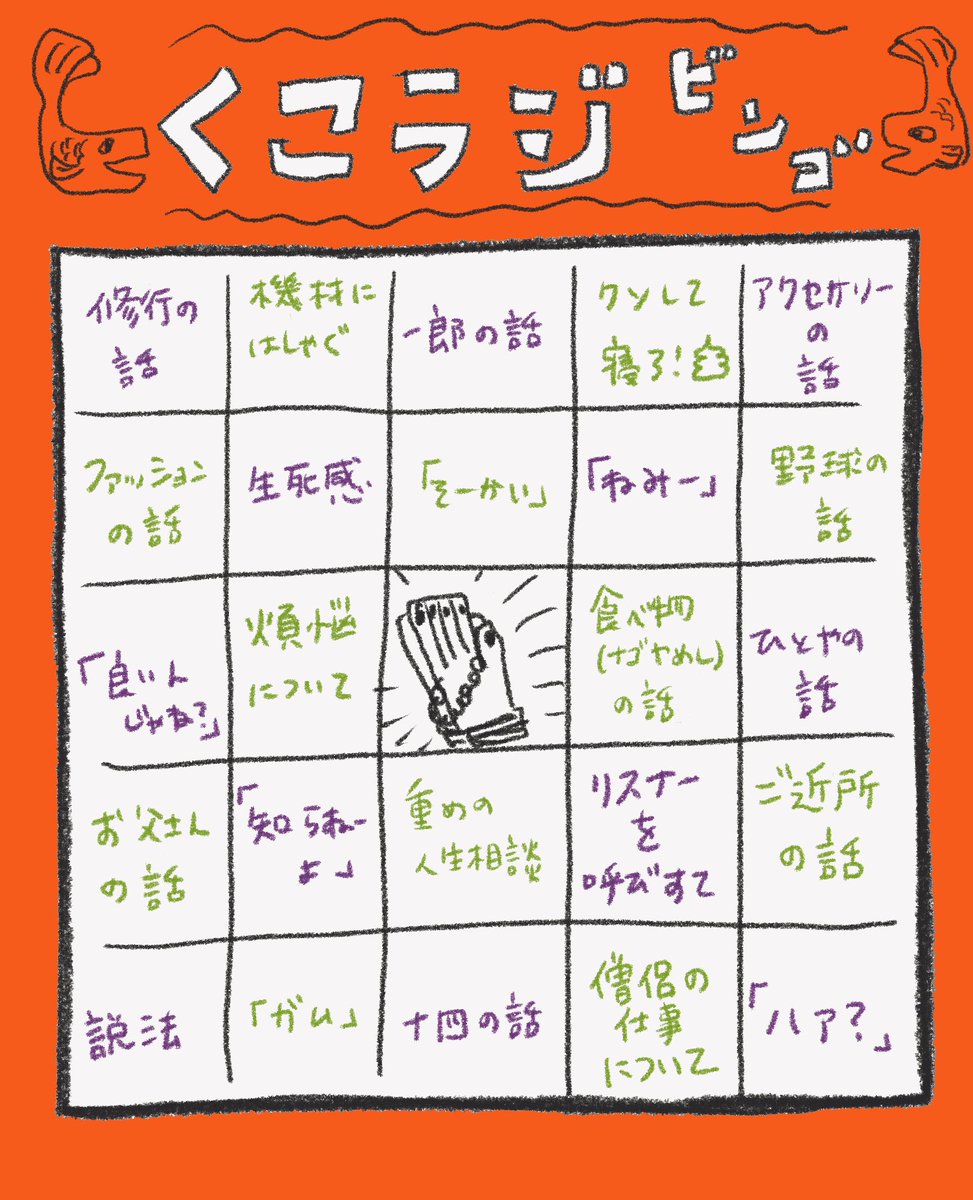 くこラジビンゴ
修行の
話
機材に
はしゃぐ
一郎の話
クソして
寝ろ!
アクセサリー
の
話
ファッション
の話
生死感
「そーかい」
「ねみー」
野球の
話
「良いん
じゃね?」
煩悩
について
食べ物
(ナゴヤめし)
の話
ひとやの
話
お父さん
の話
「知らねー
よ」
重めの
人生相談
リスナー
を
呼びすて
ご近所
の話
説法
「ガム」
十四の話
僧侶の
仕事
について
「ハァ?」